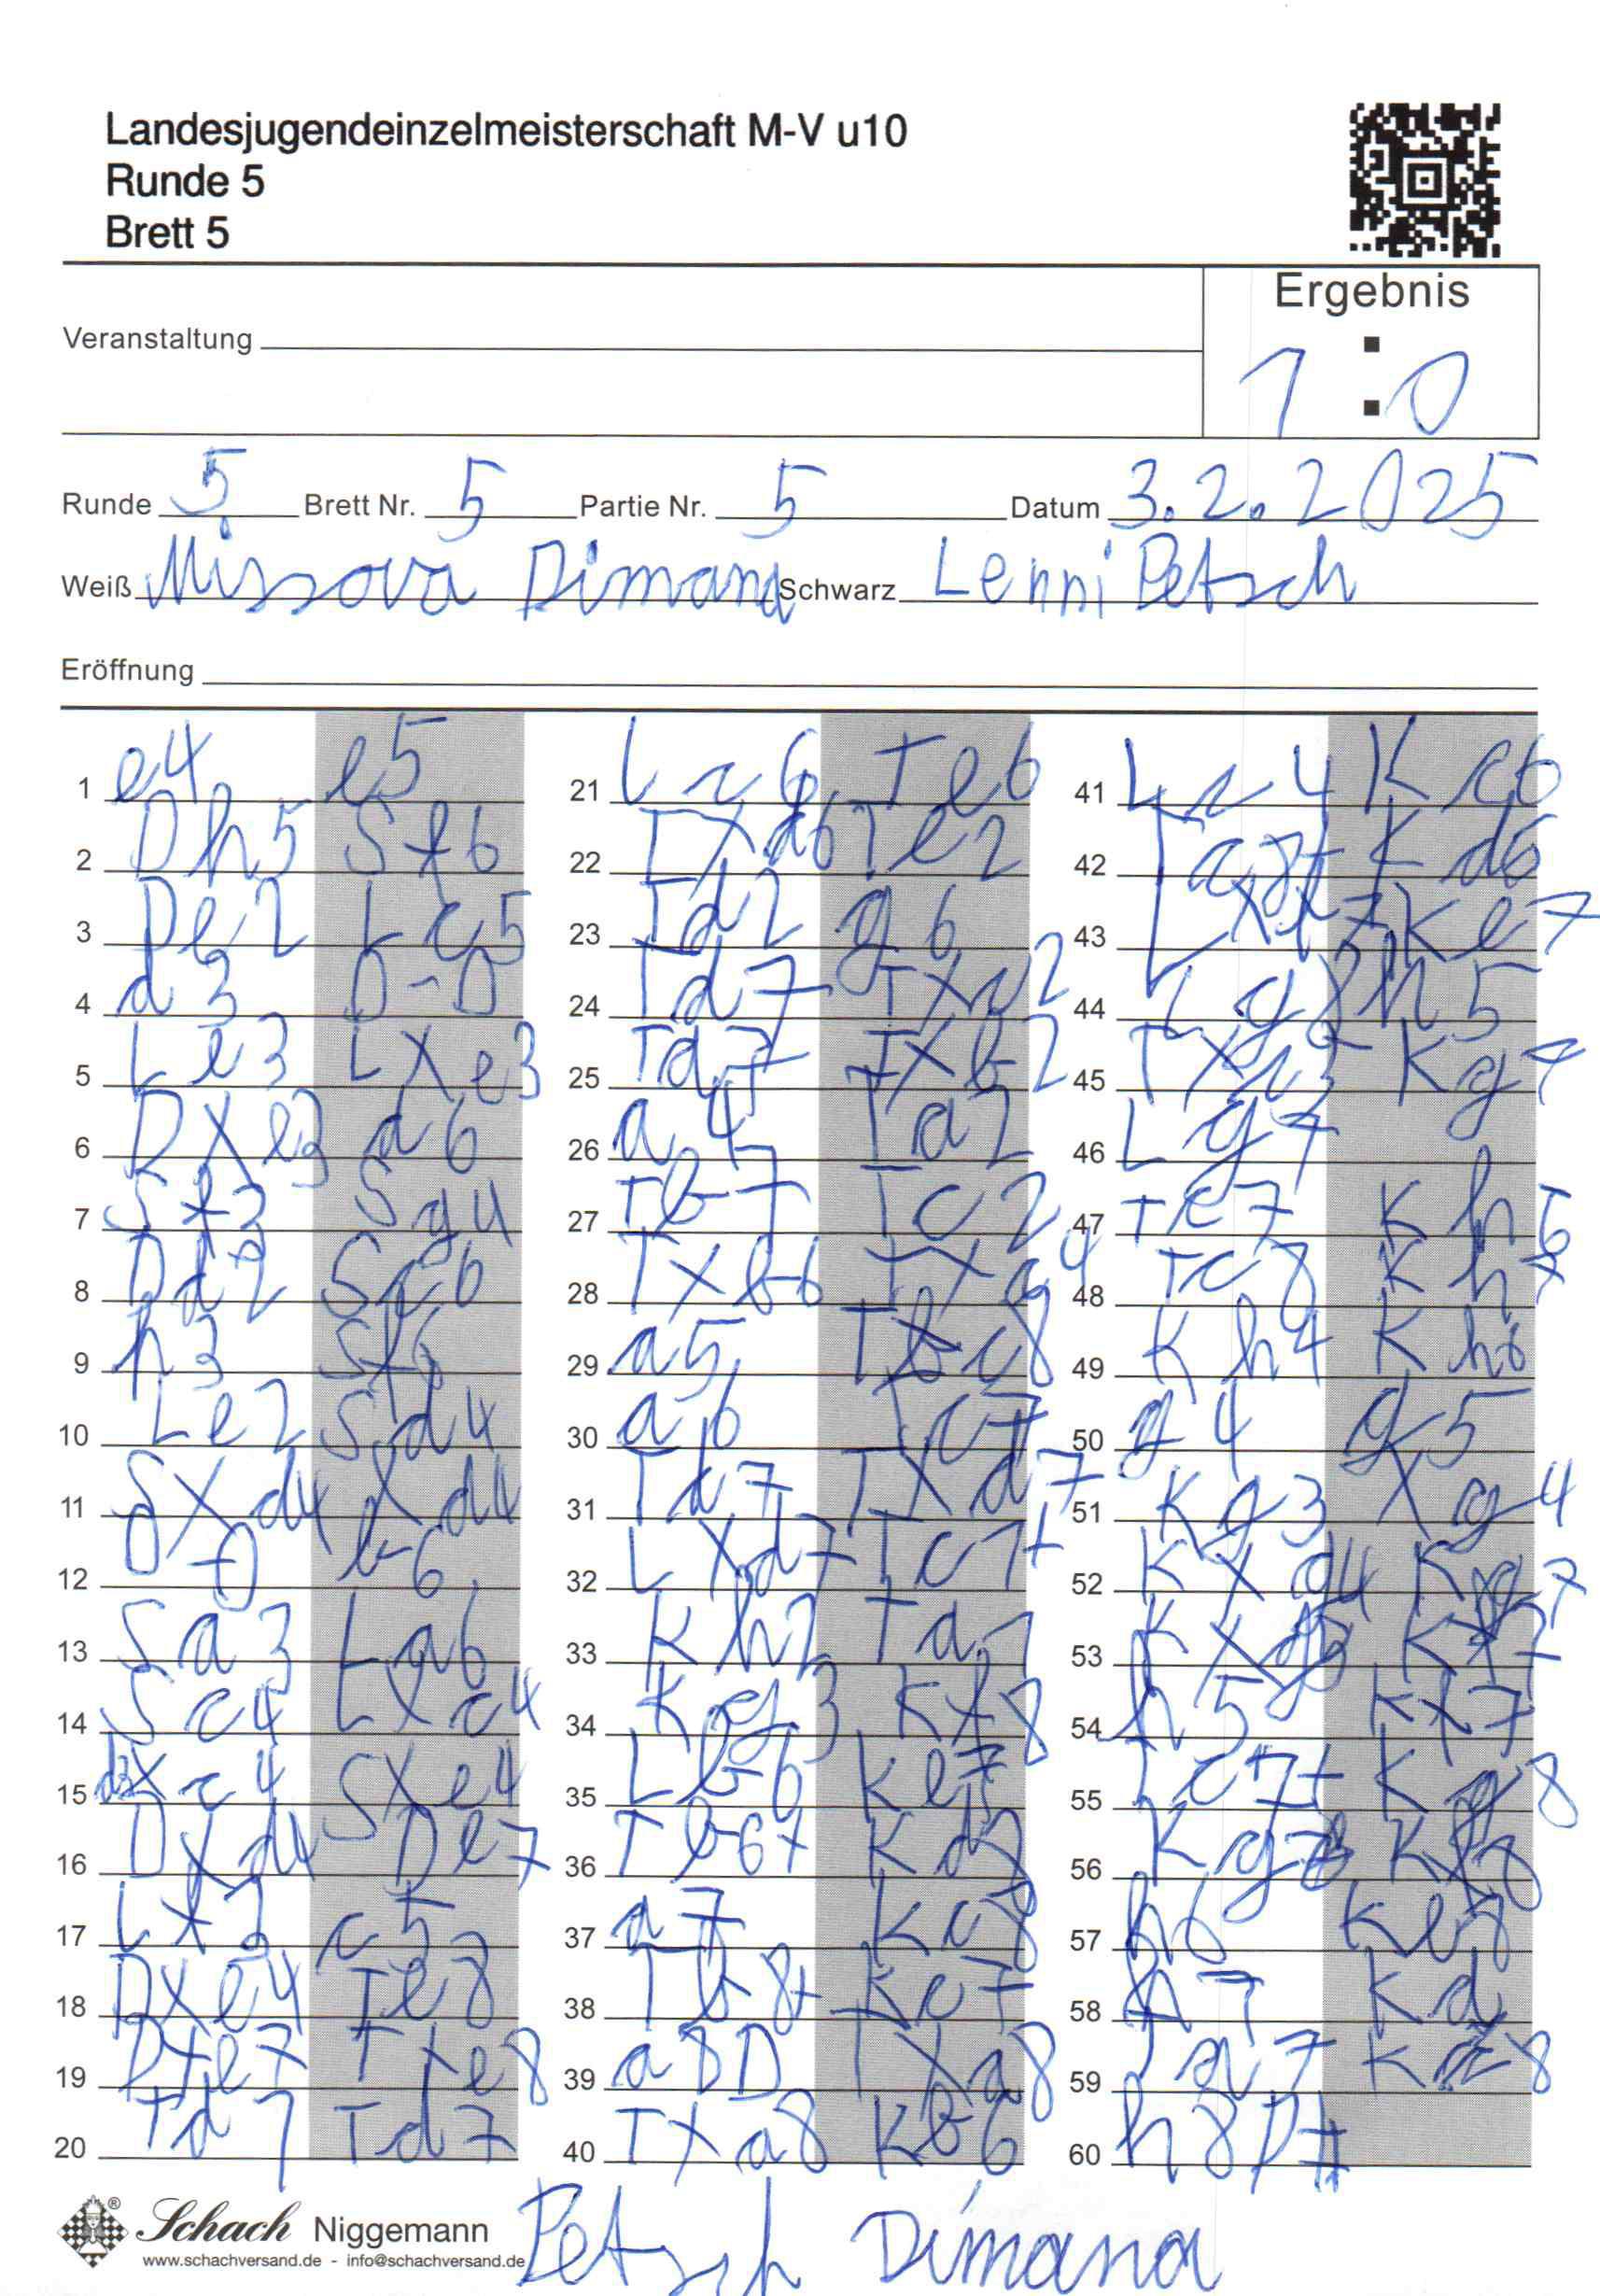 Landesjugendeinzelmeisterschaft M-V u10
Runde 5
Brett 5
Ergebnis
1 : 0
Veranstaltung
Runde 5 Brett Nr. 5 Partie Nr. 5 Datum 3.2.2025
Weiß Missova Dimana Schwarz Lenni Petsch
Eröffnung
1 e4 e5
2 Dh5 Sf6
3 De2 Lc5
4 d3 0-0
5 Le3 LXe3
6 DXe3 d6
7 Sf3 Sg4
8 Dd2 Sc6
9 h3 Sf6
10 Le2 Sd4
11 SXd4 Xd4
12 0-0 b6
13 Sa3 La6
14 Sc4 LXc4
15 dXc4 SXe4
16 DXd4 De7
17 Lf3 c5
18 DXe4 Te8
19 DXe7 TXe8
20 Td1 Td7
21 Lc6 Te6
22 LXd6 Te2
23 Td2 g6
24 Td7 TXc2
25 Td7 TXb2
26 a4 Ta2
27 Tb7 Tc2
28 TXb6 TXa4
29 a5 Tc8
30 a6 Tc7
31 Td7 TXd7
32 LXd7 Tc1+
33 Kh2 Ta1
34 Kg3 Kf8
35 Lb6 Ke7
36 Tb6+ Kd8
37 a7 Kc8
38 Tb8+ Kc7
39 a8D TXa8
40 TXa8 Kb6
41 Lc4 Kc6
42 La8+ Kd6
43 LXf7 Ke7
44 Lg8 h5
45 TXc3 Kg4
46 Lg7
47 Tc7 Kh6
48 Tc8 Kh7
49 Kh4 Kh6
50 g4 g5
51 Kg3 Xg4
52 KXg4 Kg7
53 Kf7
54 h5 Kf7
55 Tc7+ Kg8
56 Kf8
57 h6 Ke8
58 h7 Kd
59 8
60 h8D#
Schach Niggemann
www.schachversand.de - info@schachversand.de
Petsch Dimana